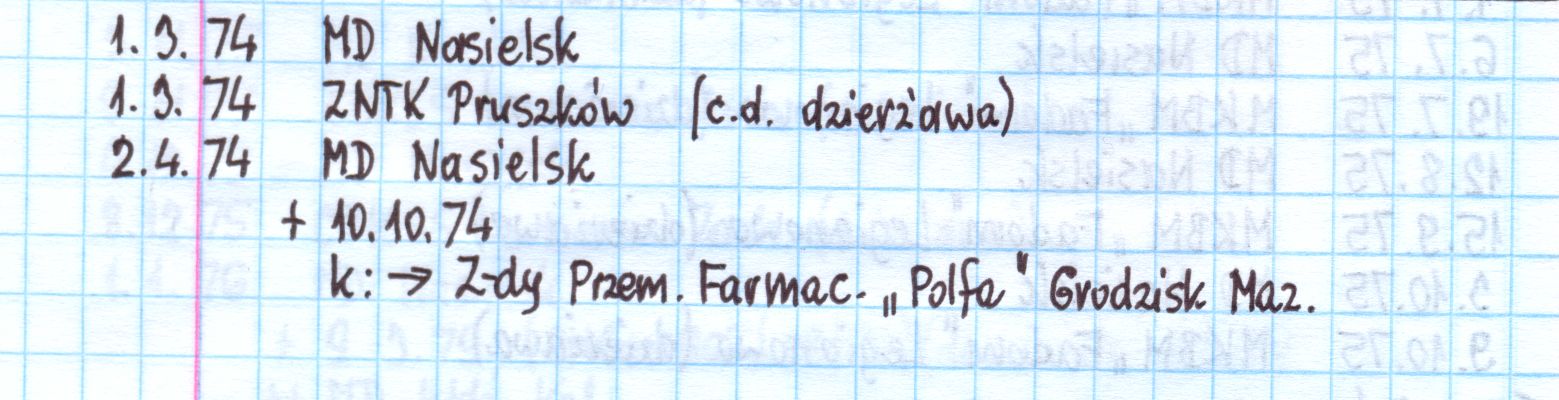 1. 3. 74 MD Nasielsk
1. 3. 74 ZNTK Pruszków (c.d. dzierżawa)
2. 4. 74 MD Nasielsk
+ 10. 10. 74
k: → Z-dy Przem. Farmac. „Polfa" Grodzisk Maz.